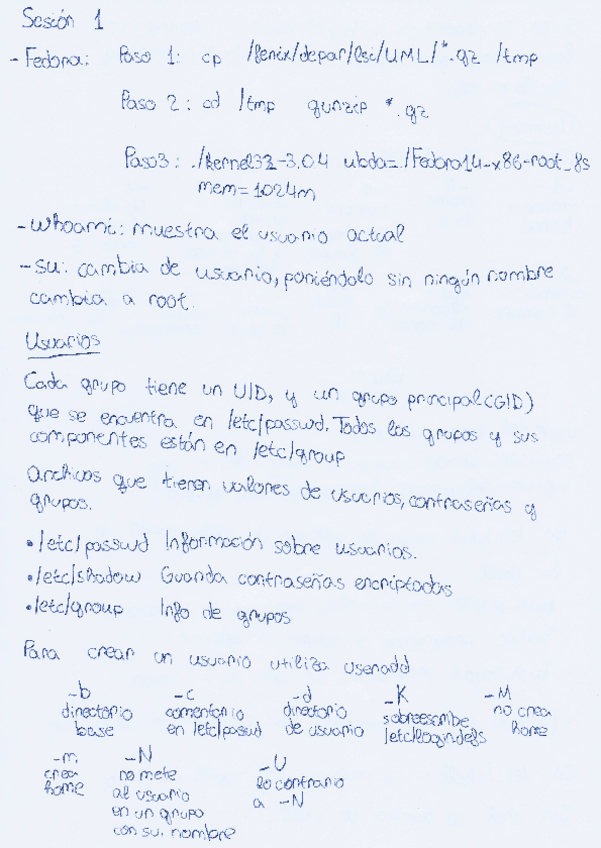 Sesión 1
- Fedora: Paso 1: cp /fenix/depar/lsi/UML/*.gz /tmp
Paso 2: cd /tmp gunzip *.gz
Paso3: ./kernel32-3.0.4 ubda=./Fedora14-x86-root_fs
mem=1024m
- whoami: muestra el usuario actual
- su: cambia de usuario, poniéndolo sin ningún nombre
cambia a root.
Usuarios
Cada grupo tiene un UID, y un grupo principal(GID)
que se encuentra en /etc/passwd. Todos los grupos y sus
componentes están en /etc/group
Archivos que tienen valores de usuarios, contraseñas y
grupos.
• /etc/passwd Información sobre usuarios.
• /etc/shadow Guarda contraseñas encriptadas
• /etc/group Info de grupos
Para crear un usuario utiliza useradd
-b -c -d -K -M
directorio comentario directorio sobreescribe no crea
base en /etc/passwd de usuario /etc/login.defs home
-m -N -U
crea no mete lo contrario
home al usuario a -N
en un grupo
con su nombre